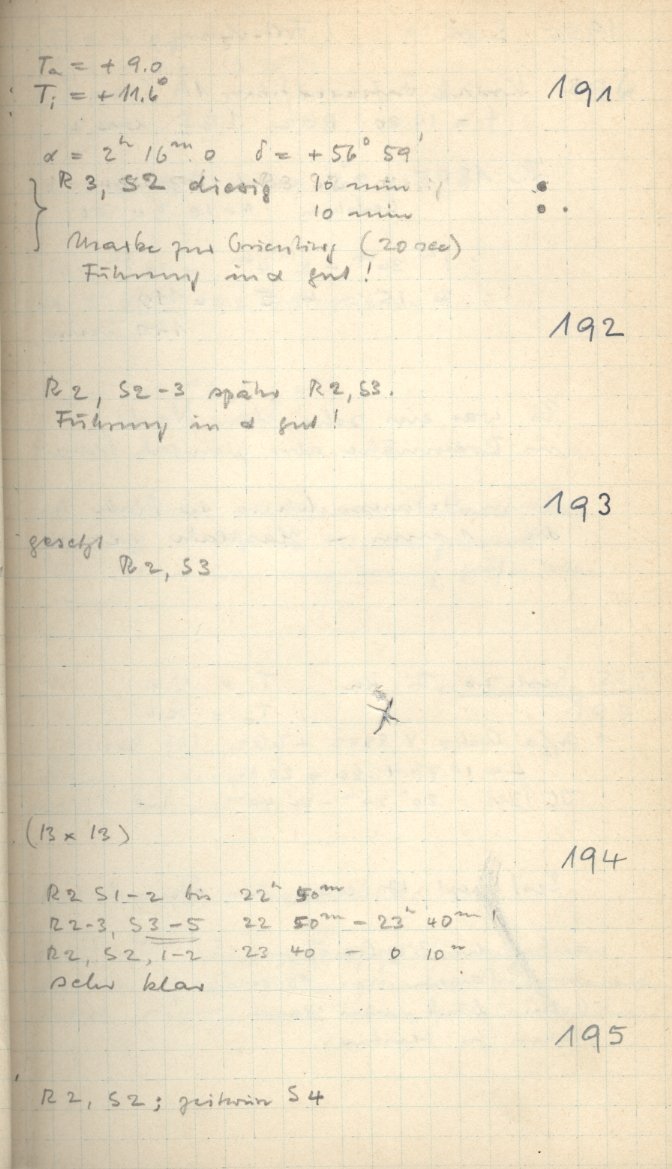 Ta = + 9.0
Ti = + 11.6°
191
α = 2h 16m.0 δ = +56° 59'
R 3, S2 diesig 10 min
10 min
Marke zur Orientierg (20 sec)
Führung in α gut!
192
R 2, S2-3 später R2, S3.
Führung in α gut!
193
gesetzt
R 2, S3
(13 x 13)
194
R2 S1-2 bis 22h 50m
R2-3, S3-5 22 50m - 23h 40m!
R2, S2, 1-2 23 40 - 0 10m
sehr klar
195
R2, S2; zeitweise S4